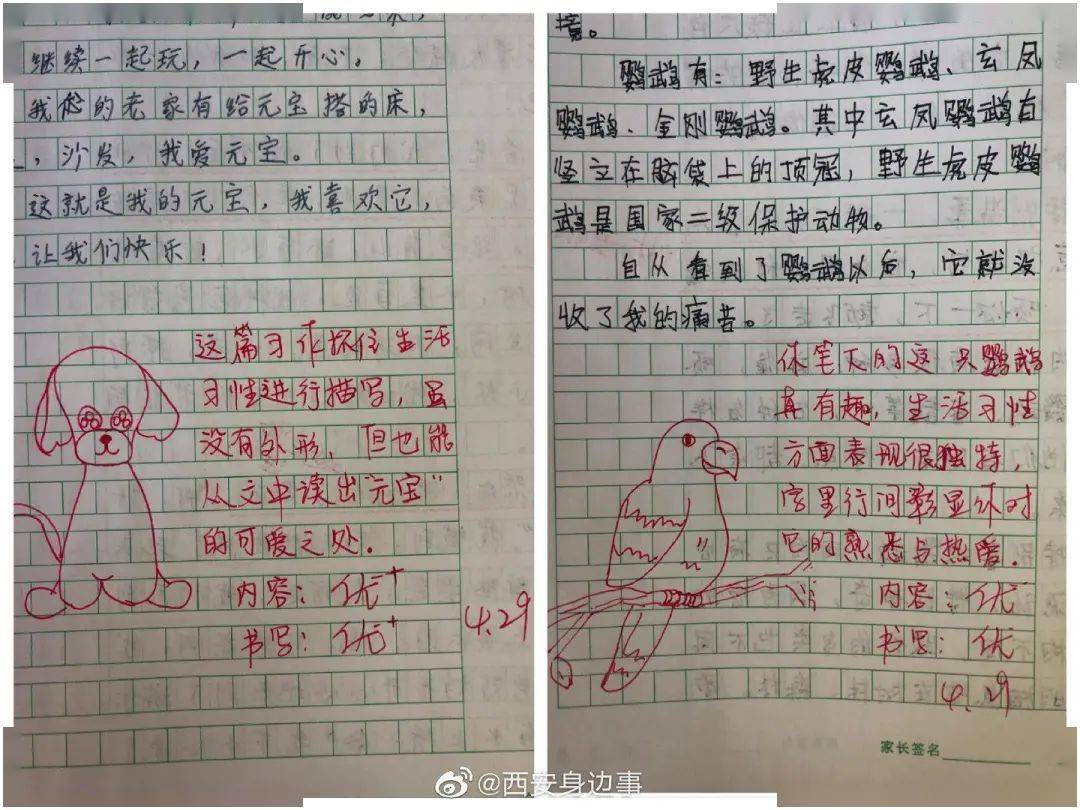 继续一起玩，一起开心。
我的老家有给元宝搭的床，
，沙发，我爱元宝。
这就是我的元宝，我喜欢它，
让我们快乐！
这篇习作抓住生活
习性进行描写，虽
没有外形，但也能
从文中读出"元宝"
的可爱之处.
内容：优+
书写：优+
4.29
境。
鹦鹉有：野生虎皮鹦鹉、玄凤
鹦鹉、金刚鹦鹉。其中玄凤鹦鹉有
竖立在脑袋上的顶冠，野生虎皮鹦
鹉是国家二级保护动物。
自从看到了鹦鹉以后，它就没
收了我的痛苦。
你笔下的这只鹦鹉
真有趣，生活习性
方面表现很独特，
字里行间彰显你对
它的熟悉与热爱.
内容：优
书写：优
4.29
家长签名
@西安身边事